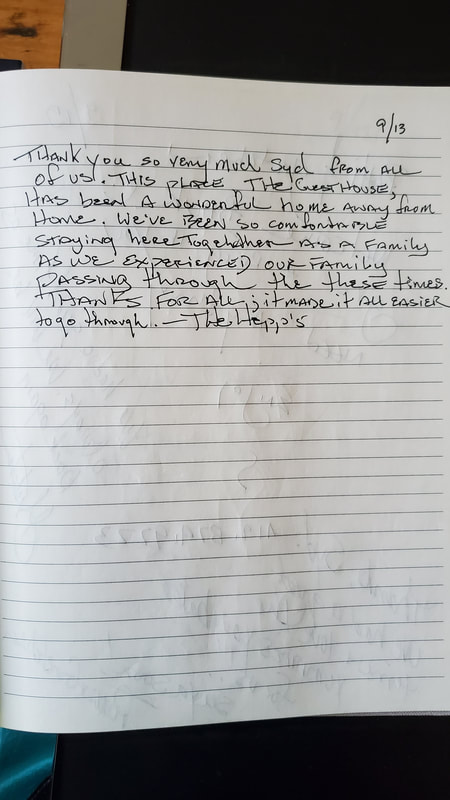 9/13
THANK you so very much Syd from ALL
of us. THIS PLACE, THE GUESTHOUSE,
HAS been A wonderful home away from
Home. We've BEEN so comfortable
staying here Together AS A Family
AS we EXPERIENCED OUR FAMILY
PASSING through the these times.
THANKS FOR ALL, it made it ALL EASIER
to go through. —The Hepp's